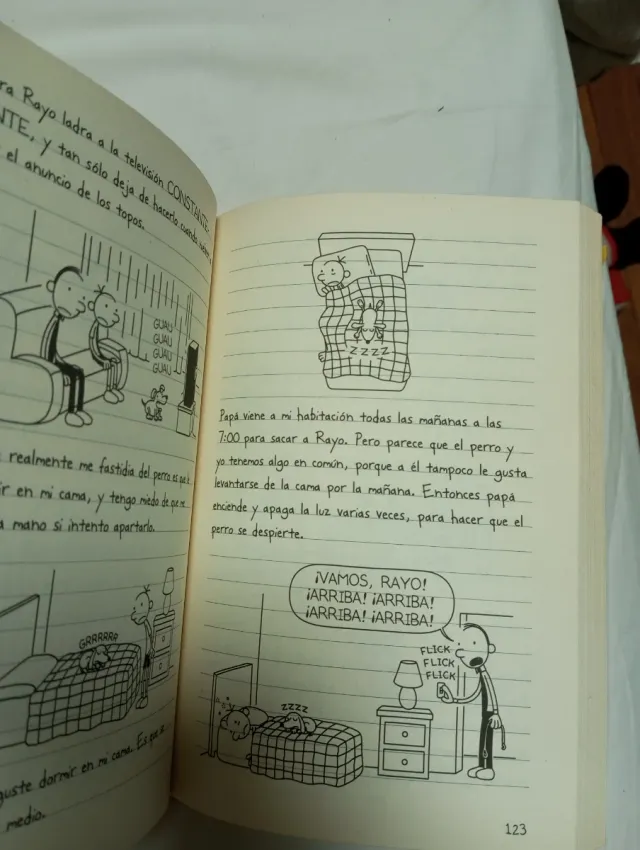 ra Rayo ladra a la televisión CONSTANTE-
NTE, y tan sólo deja de hacerlo cuando
el anuncio de los topos.
GUAU
GUAU
GUAU
GUAU
realmente me fastidia del perro es que
ir en mi cama, y tengo miedo de que me
a mano si intento apartarlo.
GRRRRRR
guste dormir en mi cama. Es que
medio.
ZZZZ
Papá viene a mi habitación todas las mañanas a las
7:00 para sacar a Rayo. Pero parece que el perro y
yo tenemos algo en común, porque a él tampoco le gusta
levantarse de la cama por la mañana. Entonces papá
enciende y apaga la luz varias veces, para hacer que el
perro se despierte.
¡VAMOS, RAYO!
¡ARRIBA! ¡ARRIBA!
¡ARRIBA! ¡ARRIBA!
FLICK
FLICK
FLICK
ZZZZ
123